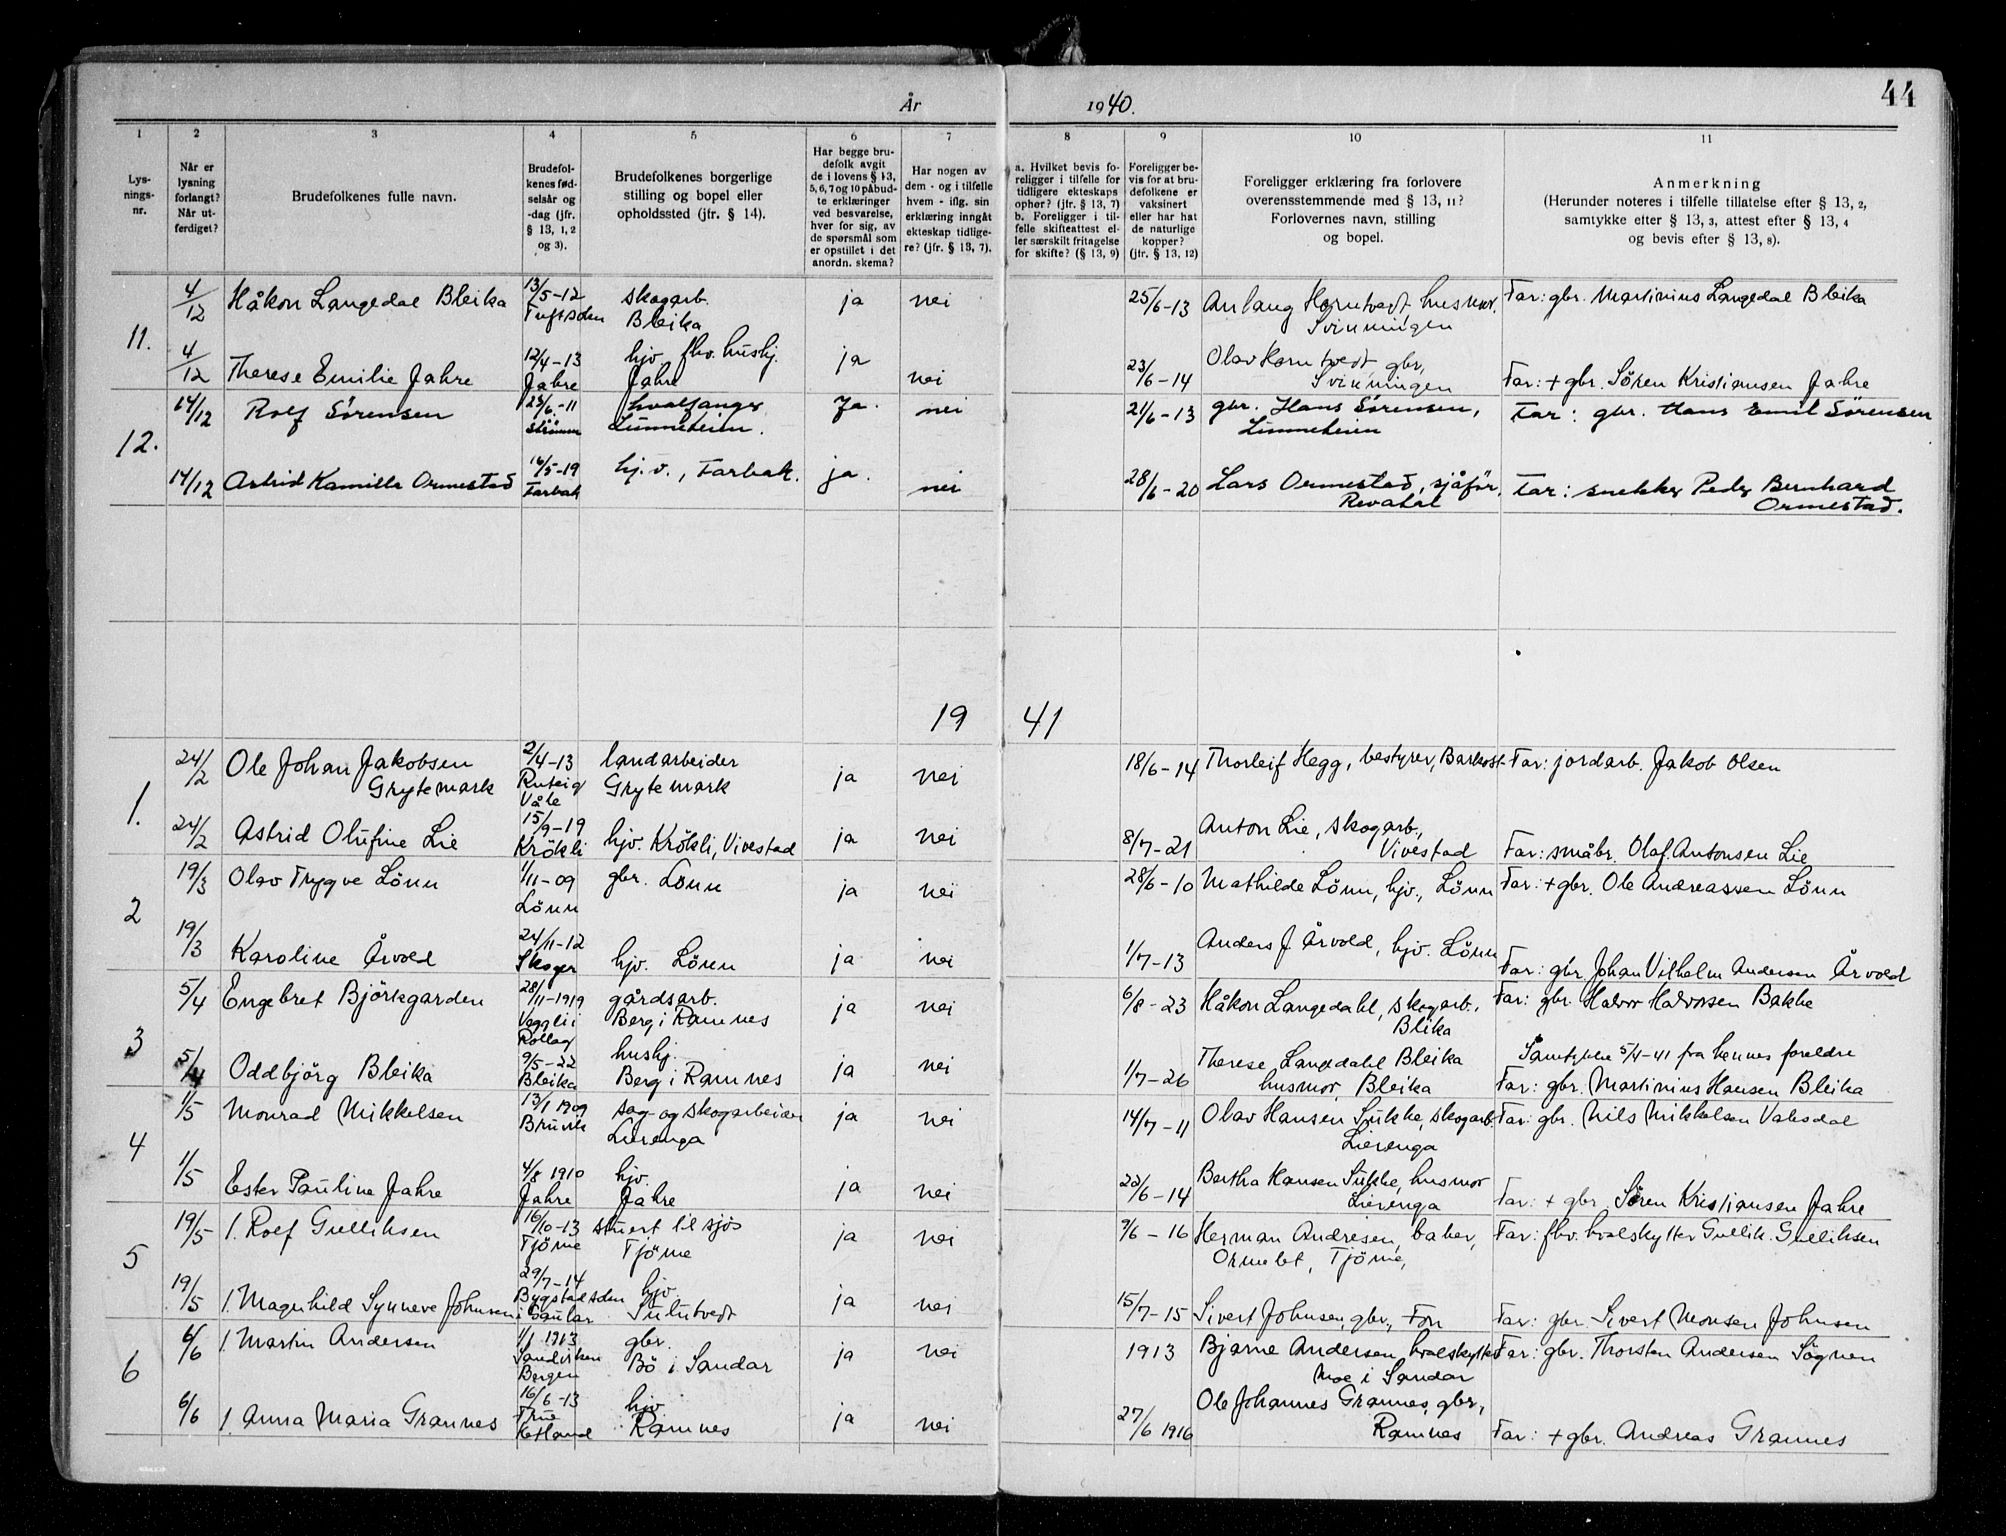 År 1940.
44
1 2 3 4 5 6 7 8 9 10 11
Lys-
nings-
nr.
Når er
lysning
forlangt?
Når ut-
ferdiget?
Brudefolkenes fulle navn.
Brudefol-
kenes fød-
selsår og
-dag (jfr.
§ 13, 1, 2
og 3).
Brudefolkenes borgerlige
stilling og bopel eller
opholdssted (jfr. § 14).
Har begge bru-
defolk avgit
de i lovens § 13,
5, 6, 7 og 10 påbud-
te erklæringer
ved besvarelse,
hver for sig, av
de spørsmål som
er opstillet i det
anordn. skema?
Har nogen av
dem - og i tilfelle
hvem - iflg. sin
erklæring inngått
ekteskap tidlige-
re? (jfr. § 13, 7).
a. Hvilket bevis fo-
religger i tilfelle for
tidligere ekteskaps
opher? (jfr. § 13, 7)
b. Foreligger i til-
felle skifteattest el-
ler særskilt fritagelse
for skifte? (§ 13, 9)
Foreligger be-
vis for at bru-
defolkene er
vaksinert
eller har hat
de naturlige
kopper?
(jfr. § 13, 12)
Foreligger erklæring fra forlovere
overensstemmende med § 13, 11?
Forlovernes navn, stilling
og bopel.
Anmerkning
(Herunder noteres i tilfelle tillatelse efter § 13, 2,
samtykke efter § 13, 3, attest efter § 13, 4
og bevis efter § 13, 8).
11.
4/12 Håkon Langedal Bleika 13/5-12 skogarb. ja nei 25/6-13 Anlaug Horntvedt, husmor. Far: gbr. Martinius Langedal Bleika
Bleika Svinningen
4/12 Therese Emilie Jahre 12/4-13 hjv. fhv. hushj. ja nei 23/6-14 Olav Horntvedt, gbr, Far: + gbr. Søren Kristiansen Jahre
Jahre Jahre Svinningen
12.
14/12 Rolf Sørensen 23/6-11 hvalfanger Ja. nei 21/6-13 gbr. Hans Sørensen, Far: gbr. Hans Emil Sørensen
Strømm Linneheim. Linneheim
14/12 Astrid Kamilla Ormestad 16/5-19 hj.v., Farbak. ja. nei 28/6-20 Lars Ormestad, sjåfør, Far: snekker Peder Bernhard
Farbak Revatal Ormestad.
19 41
1.
24/2 Ole Johan Jakobsen 2/4-13 landarbeider ja nei 18/6-14 Thorleif Hegg, bestyrer, Barkost Far: jordarb. Jakob Olsen
Grytemark Våle Grytemark
24/2 Astrid Olufine Lie 15/9-19 hjv. Krökli, Vivestad ja nei 8/7-21 Anton Lie, skogarb, Far: småbr. Olaf Antonsen Lie
Krökli Vivestad
2
19/3 Olav Trygve Lönn 1/11-09 gbr. Lönn ja nei 28/6-10 Mathilde Lönn, hjv., Lönn Far: + gbr. Ole Andreassen Lönn
Lönn
19/3 Karoline Årvold 24/11-12 hjv. Lönn ja nei 1/7-13 Anders J. Årvold, hjv. Lönn Far: gbr. Johan Vilhelm Andersen Årvold
Skoger
3
5/4 Engebret Björkgarden 28/11-1919 gårdsarb. ja nei 6/8-23 Håkon Langedahl, skogarb. Far: gbr. Halvor Halvorsen Bakke
Veggli i Berg i Ramnes Blika
Rollag
5/4 Oddbjörg Bleika 9/5-22 hushj. ja nei 1/7-26 Therese Langedahl Bleika Samtykke 5/4-41 fra hennes foreldre
Bleika Berg i Ramnes husmor, Bleika Far: gbr. Martinius Hansen Bleika
4
1/5 Monrad Mikkelsen 13/1 1909 sag- og skogarbeider ja nei 14/7-11 Olav Hansen Sukke, skogarb. Far: gbr. Nils Mikkelsen Valesdal
Bruvik Lierenga Lierenga
1/5 Ester Pauline Jahre 4/8 1910 hjv. ja nei 22/6-14 Bertha Hansen Sukke, husmor Far: + gbr Sören Kristiansen Jahre
Jahre Jahre Lierenga
5
19/5 1. Rolf Gulliksen 16/10-13 stuert til sjös ja nei 7/6-16 Herman Andresen, baker, Far: fhv. hvalskytter Gullik Gulliksen
Tjöme Tjöme Ormelet, Tjöme,
19/5 1. Magnhild Synneve Johnsen 29/7-14 hjv. ja nei 15/7-15 Sivert Johnsen, gbr., Fon Far: gbr. Sivert Monsen Johnsen
Bygstad sokn
i Gaular Sulutvedt
6
6/6 1. Martin Andersen 1/1 1913 gbr. ja nei 1913 Bjarne Andersen, hvalskytter Far: gbr. Thorsten Andersen Sögnen
Sandviken Bö i Sandar Moe i Sandar
Bergen
6/6 1. Anna Maria Grannes 16/6-13 hjv ja nei 27/6 1916 Ole Johannes Grannes, gbr, Far: + gbr. Andreas Grannes
Hetland Ramnes Ramnes